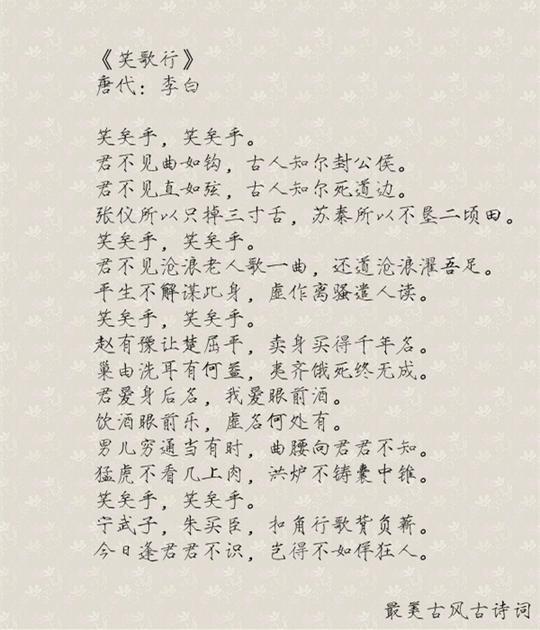 《笑歌行》
唐代：李白
笑矣乎，笑矣乎。
君不见曲如钩，古人知尔封公侯。
君不见直如弦，古人知尔死道边。
张仪所以只掉三寸舌，苏秦所以不垦二顷田。
笑矣乎，笑矣乎。
君不见沧浪老人歌一曲，还道沧浪濯吾足。
平生不解谋此身，虚作离骚遣人读。
笑矣乎，笑矣乎。
赵有豫让楚屈平，卖身买得千年名。
巢由洗耳有何益，夷齐饿死终无成。
君爱身后名，我爱眼前酒。
饮酒眼前乐，虚名何处有。
男儿穷通当有时，曲腰向君君不知。
猛虎不看几上肉，洪炉不铸囊中锥。
笑矣乎，笑矣乎。
宁武子，朱买臣，扣角行歌背负薪。
今日逢君君不识，岂得不如佯狂人。
最美古风古诗词